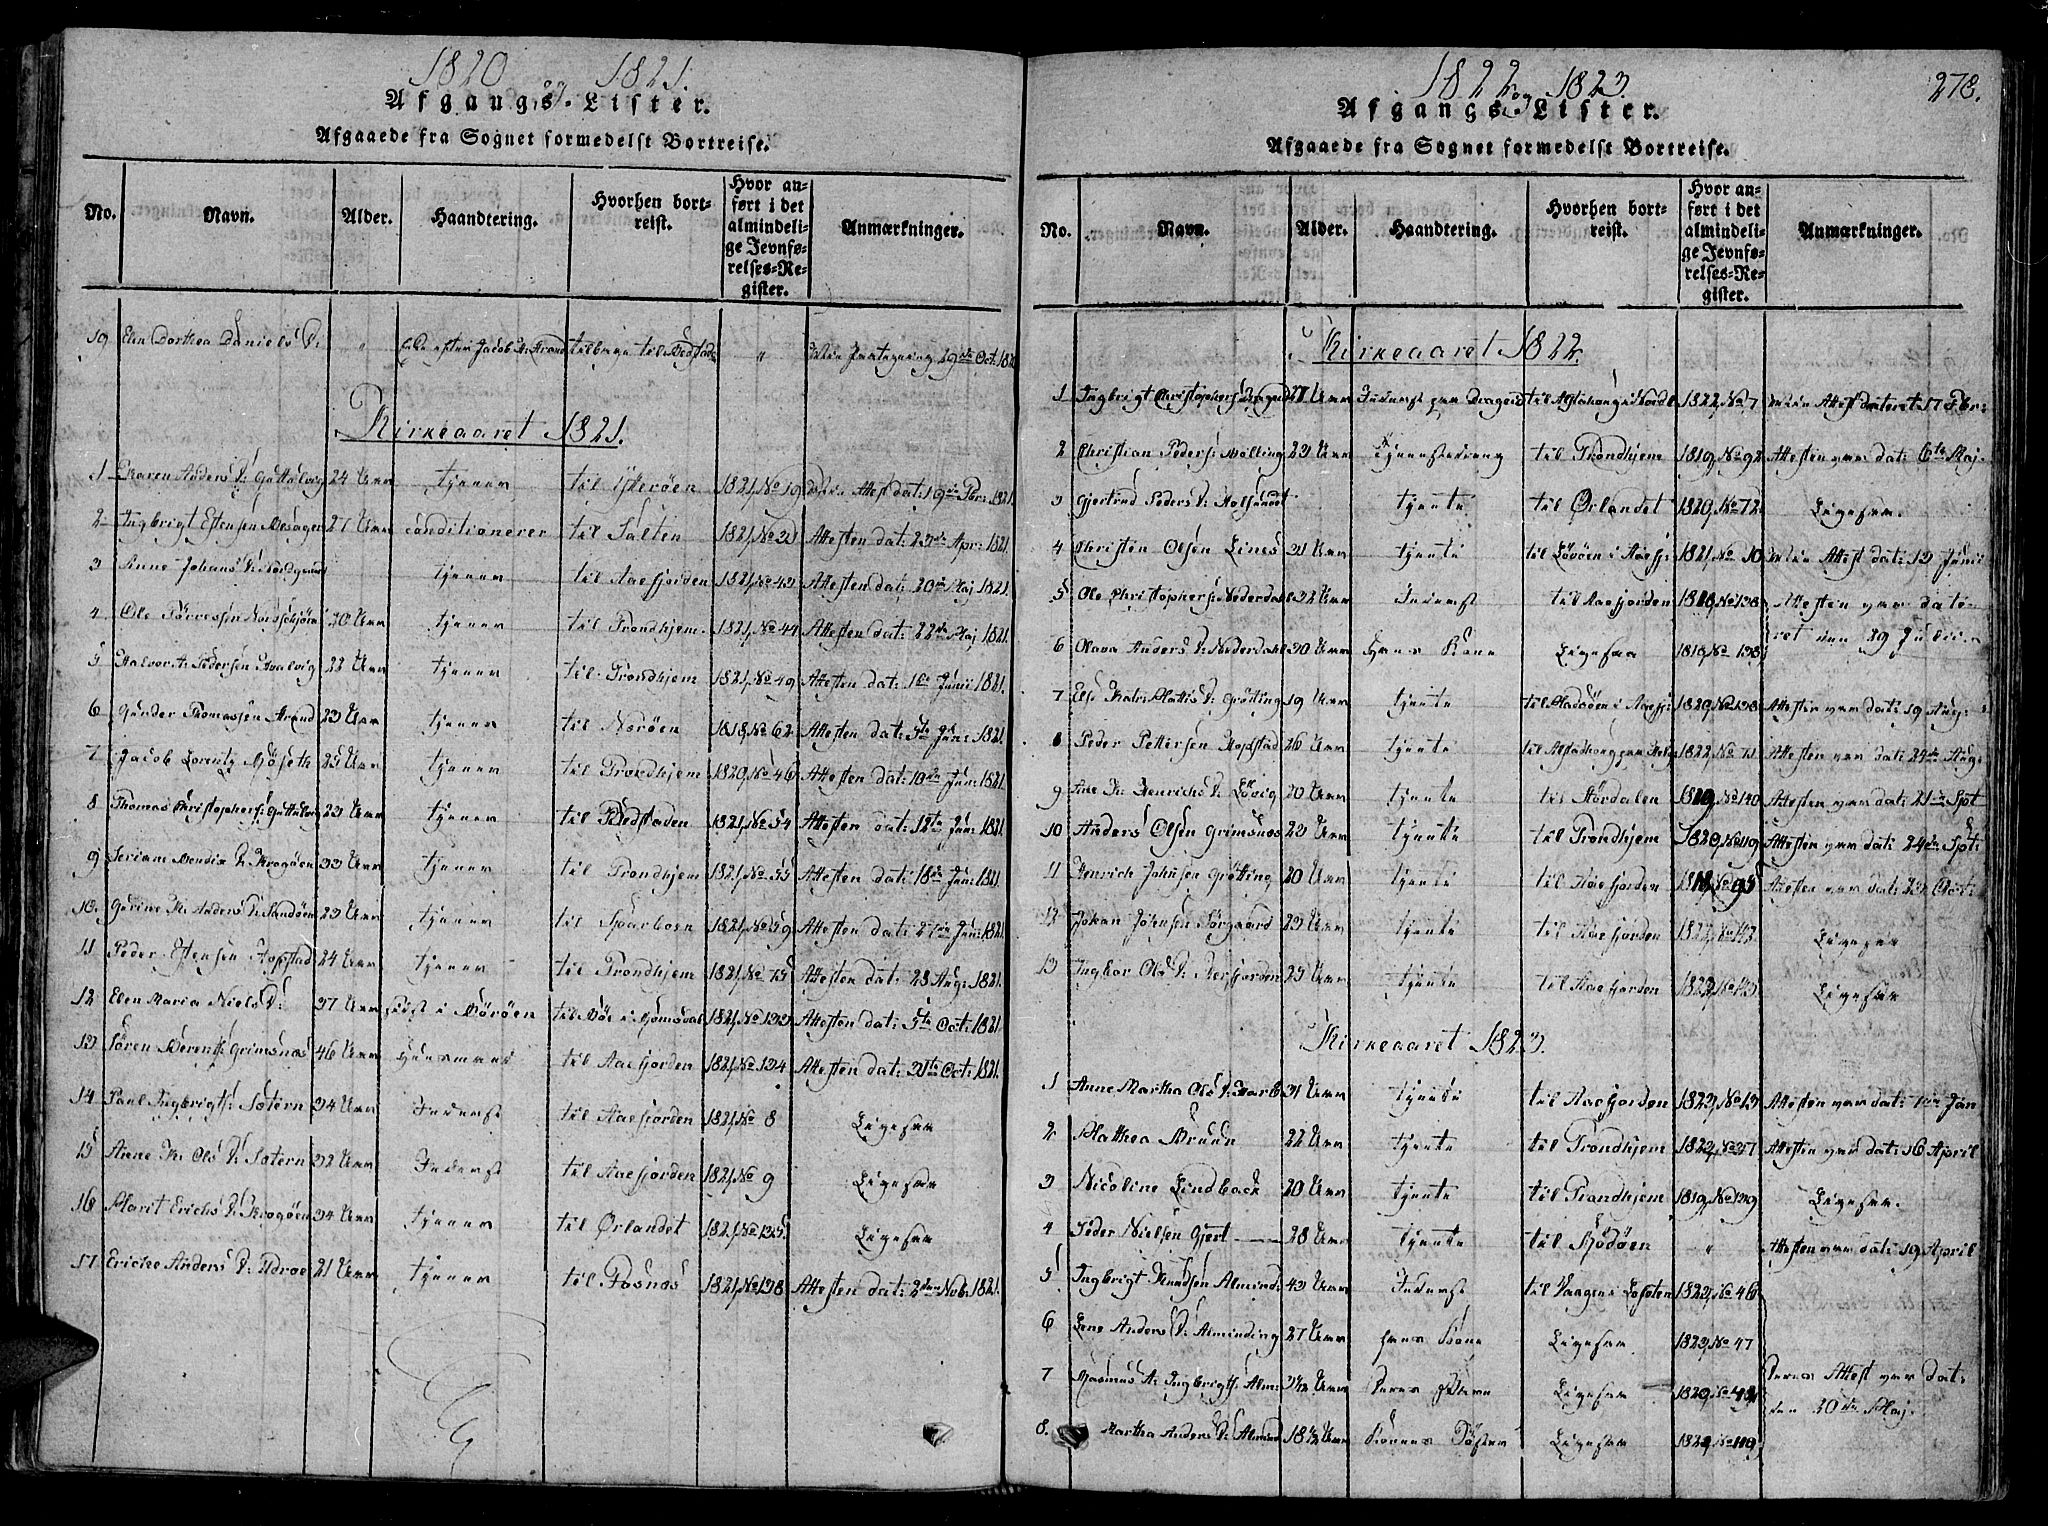 1820 og 1821.
Afgangs-Lister.
Afgaaede fra Sognet formedelst Bortreise.
No. Navn. Alder. Haandtering. Hvorhen bortreist. Hvor anført i det almindelige Jevnførelses-Register. Anmærkninger.
19 Elen Dorthea Daniels D: " Jacob tilbage til " 19de Oct: 182
Kirkeaaret 1821.
1 Karen Anders D: Guttelvig 24 Aar tjener til Ytterøen 1821, No 19 Attest dat: 19de 1821.
2 Ingbrigt Estensen 27 Aar conditionerer til Salten 1821, No 23 Attesten dat: 23de Apr: 1821.
3 Anne Johans D: tjener til Aaefjorden 1821, No 43 Attesten dat: 20de Maj 1821.
4 Ole 20 Aar tjener til Trondhjem. 1821, No 44 Attesten dat: 22de Maj 1821.
5 Halvor Pedersen 22 Aar tjener til Trondhjem 1821, No 49 Attesten dat: 1te Junii 1821.
6 Gunder Thomassen Strand 23 Aar tjener til Nærøen 1818, No 62 Attesten dat: 5te Jun: 1821.
7 Jacob Lorentz 25 Aar tjener til Trondhjem 1820, No 46 Attesten dat: 10de Jun: 1821.
8 Thomas Christophers: Guttelvig 23 Aar tjener til 1821, No 54 Attesten dat: 12te Jun: 1821.
9 Bendix D: Krogøen 33 Aar tjener til Trondhjem 1821, No 55 Attesten dat: 18de Jun: 1821.
10. Anders D: Sandøen 23 Aar tjener til Sparboen 1821, No 59 Attesten dat: Jun: 1821.
11 Peder Estensen Hopstad 24 Aar tjener til Trondhjem 1821, No 75 Attesten dat: 28 Aug: 1821.
12 Elen Maria Niels D: 37 Aar født i til 1821, No 133 Attesten dat: 5te Oct: 1821.
13 Sören Berents: Grimsnæs 46 Aar Huusmand til Aaefjorden 1821, No 134 Attesten dat: 31te Oct: 1821.
14 Paul Ingbrigts: Sætern 34 Aar Inderst til Aaefjorden 1821, No 8 Ligesaa
15 Anne K: Ols D: Sætern 32 Aar Inderst til Aaefjorden 1821, No 9 Ligesaa
16 Marit Erichs D: Krogøen 34 Aar tjener til Ørlandet 1821, No 135. Ligesaa
17 Ericke Anders D: 21 Aar tjener til Fosnæs 1821, No 138 Attesten dat: 2den Nvb: 1821.
1822 og 1823. 278.
Afgangs-Lister.
Afgaaede fra Sognet formedelst Bortreise.
No. Navn. Alder. Haandtering. Hvorhen bortreist. Hvor anført i det almindelige Jevnførelses-Register. Anmærkninger.
Kirkeaaret 1822.
1 Ingbrigt Christophers: Aar Inderst paa Drageid til Alstahoug i Nordl: 1822, No 7 Attest dateret 17 Fbr:
2 Christian Peders: Mölling 23 Aar til Trondhjem 1819, No 92 Attesten var dat: 6te Maj
3 Gjertrud Peders D: tjente til Ørlandet 1820, No 72 Ligesaa.
4 Christen Olsen Lines 21 Aar tjente til Lövöen i Aaefj: 1821, No 10 Attest dat: 13 Junii
5 Ole Christophers: Nederdahl 32 Aar Inderst til Aaefjorden Attesten var date-
6 Olava Anders D: Nederdahl 30 Aar Hans Kone Ligesaa ret den 29 Julii
7 Else D: Grötting 19 Aar tjente til i Aaefj: Attesten var dat: 19 Aug:
8 Peder Pettersen Hopstad 26 Aar tjente til Alstahoug paa 1822, No 71 Attesten var dat: 24de Aug:
9 Henrichs D: Lövig 20 Aar tjente til Stördalen No 140 Attesten var dat: 21de Spt
10 Anders Olsen Grimsnæs 23 Aar tjente til Trondhjem 1820, No 119 Attesten var dat: 24de Spt:
11 Henrich Johnsen Grötting 20 Aar tjente til Aaefjorden No 95 Attesten var dat: Oct:
12 Johan Johnsen Sörgaard 23 Aar tjente til Aaefjorden Ligesaa
13 Ingbor Ols D: 25 Aar tjente til Aaefjorden Ligesaa
Kirkeaaret 1823.
1 Anne Martha Ols D: 31 Aar tjente til Aaefjorden 1823, No 13 Attesten var dat: Jan
2 Mathea Bruun 22 Aar tjente til Trondhjem 1823, No 37 Attesten var dat: 16 April
3 Nicoline Lindback 20 Aar tjente til Trondhjem 1819, No 139 Ligesaa.
4 Peder Nielsen Gjert — 28 Aar tjente til " Attesten var dat: 19 April
5 Ingbrigt Knudsen Alminds: 43 Aar Inderst til Vaagen i Lofoten 1823, No 46
6 Lene Anders D: Alminding 27 Aar hans Kone Ligesaa 1823, No 47
7 Rasmus A: Ingbrigts: Alm: Aar Deres Barn Ligesaa Deres Attest var dat:
8. Martha Anders D: Almind 18½ Aar Konens Söster Ligesaa den 30te Maj.